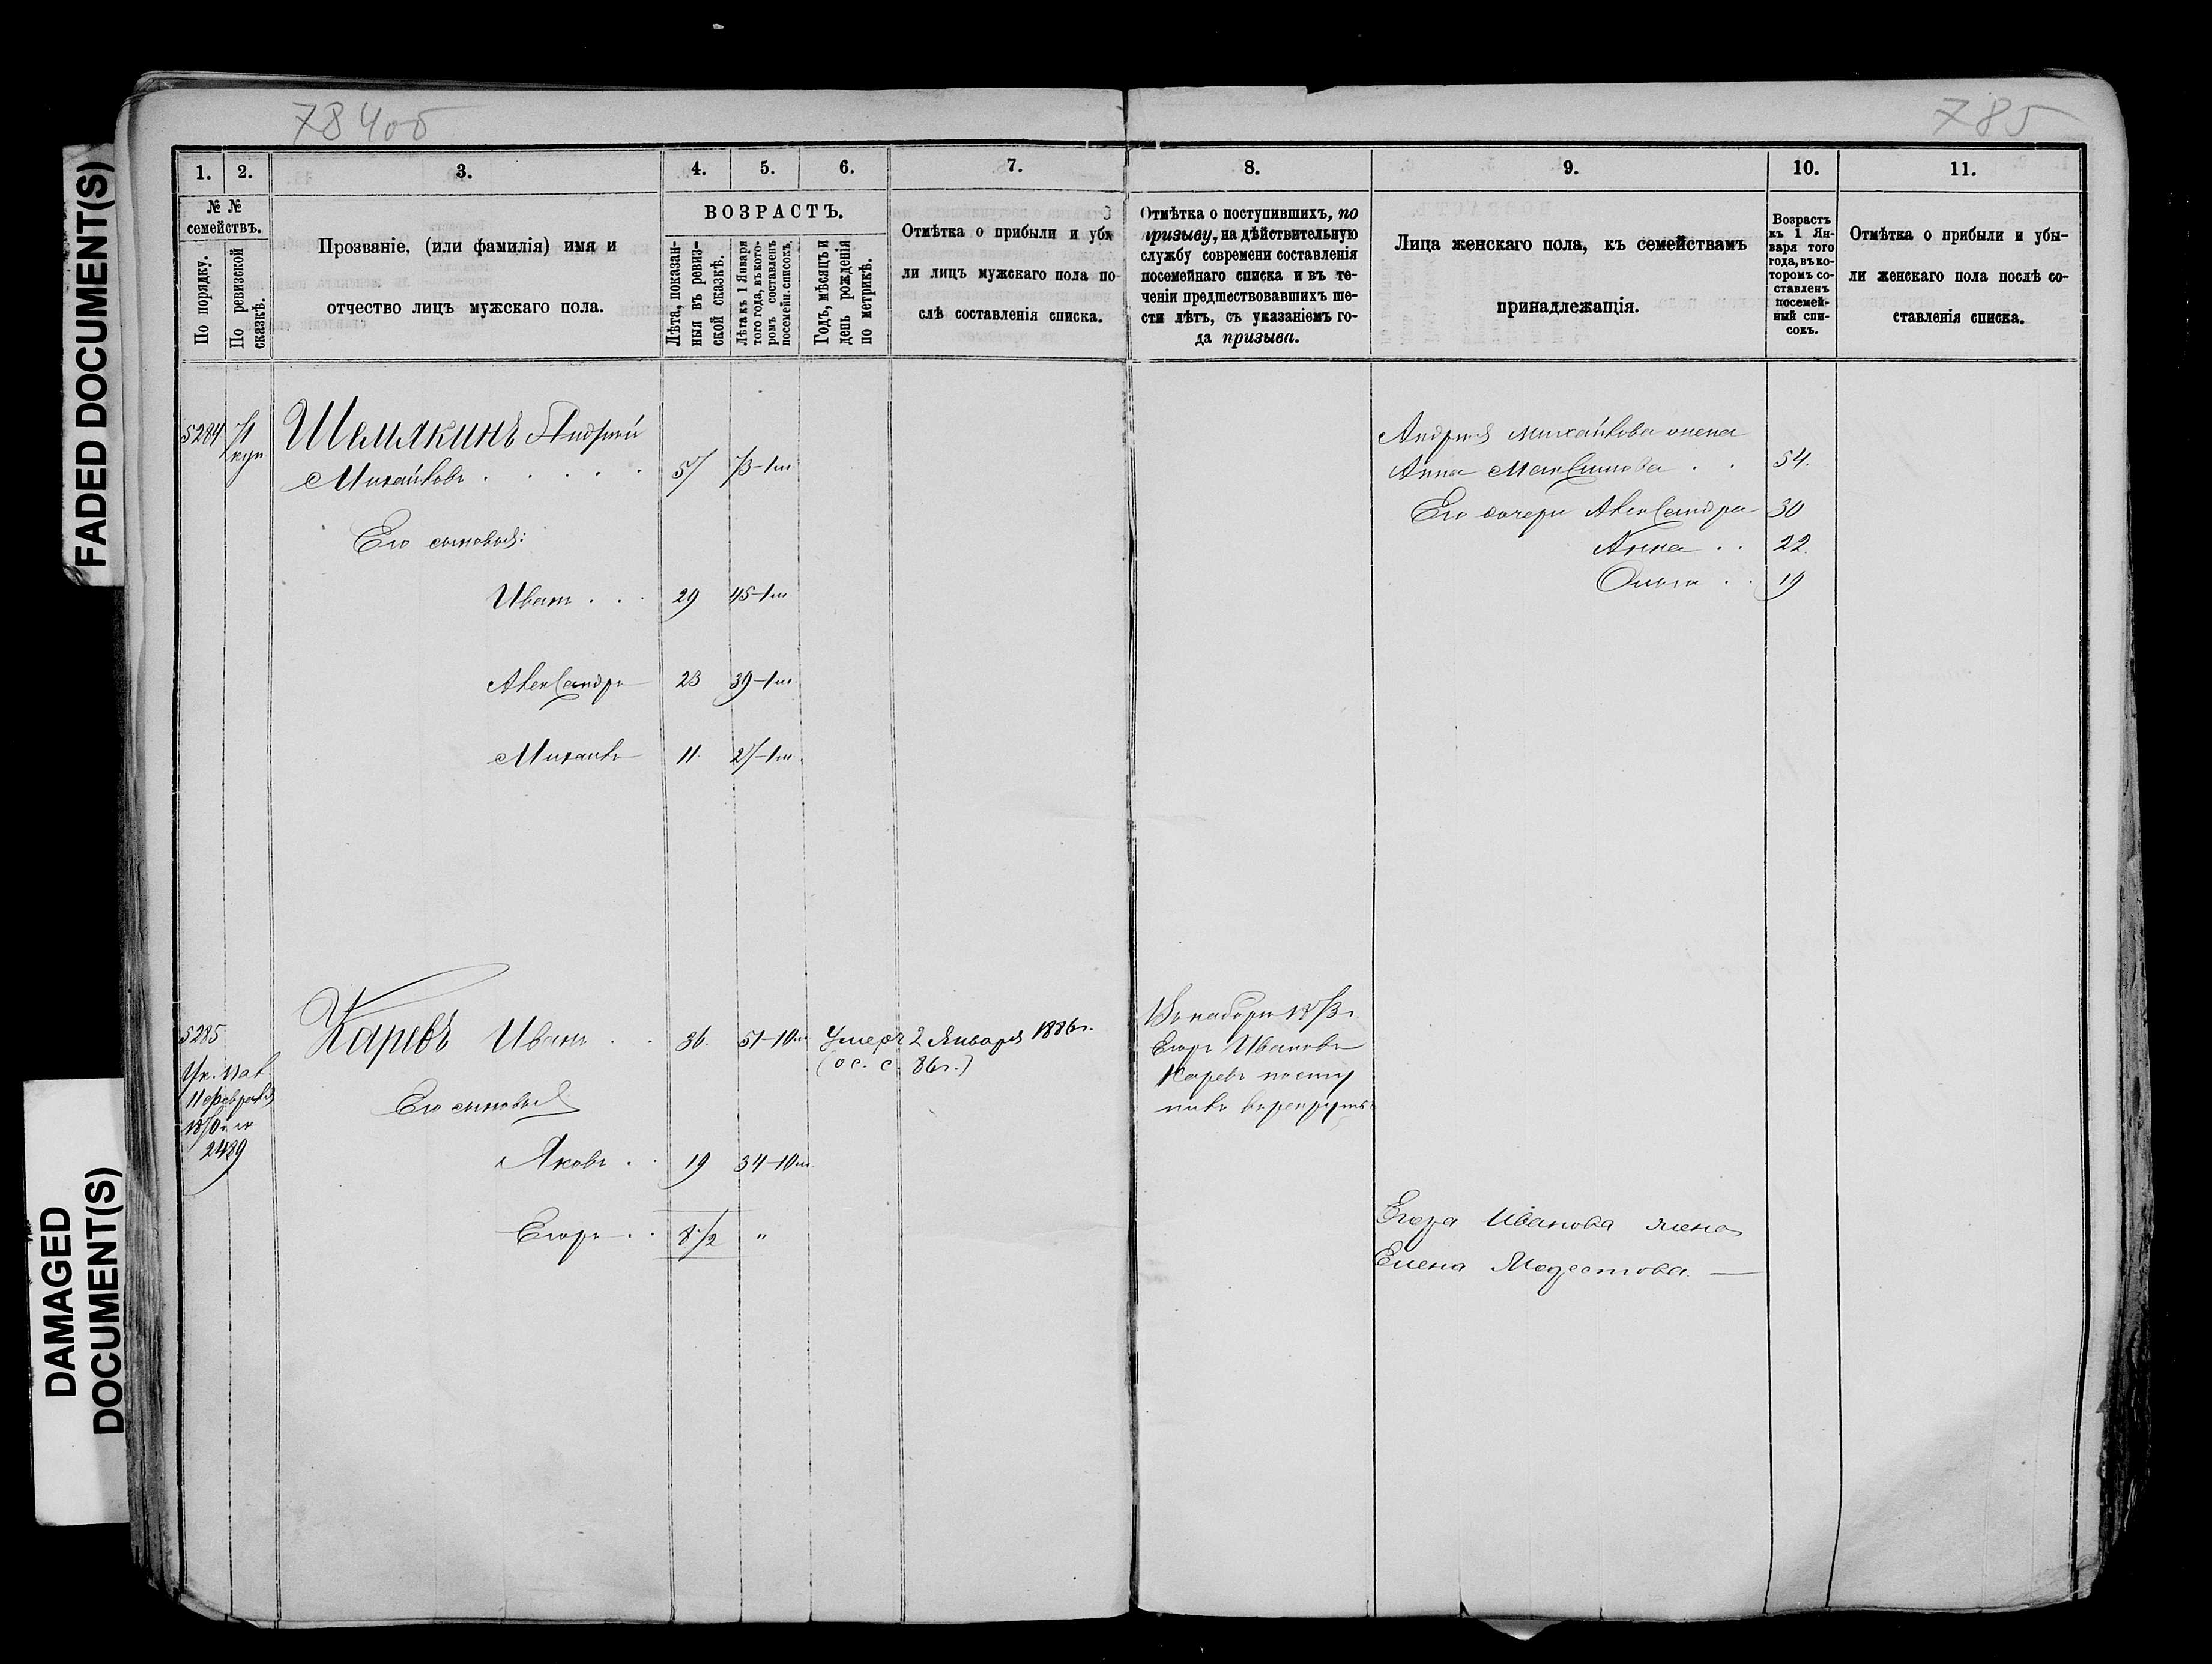 784об
785
FADED DOCUMENT(S)
DAMAGED
DOCUMENT(S)
1.
2.
3.
4.
5.
6.
7.
8.
9.
10.
11.
№ №
семействъ.
По порядку.
По ревизской
сказкѣ.
Прозваніе, (или фамилія) имя и
отчество лицъ мужскаго пола.
ВОЗРАСТЪ.
Лѣта, показан-
ныя въ ревиз-
ской сказкѣ.
Лѣта къ 1 Января
того года, въ кото-
ромъ составленъ
посемейн. списокъ.
Годъ, мѣсяцъ и
день рожденія
по метрикѣ.
Отмѣтка о прибыли и убы
ли лицъ мужскаго пола по-
слѣ составленія списка.
Отмѣтка о поступившихъ, по
призыву, на дѣйствительную
службу современи составленія
посемейнаго списка и въ те-
ченіи предшествовавшихъ ше-
сти лѣтъ, съ указаніемъ го-
да призыва.
Лица женскаго пола, къ семействамъ
принадлежащія.
Возрастъ
къ 1 Ян-
варя того
года, въ ко-
торомъ со-
ставленъ
посемей-
ный спи-
сокъ.
Отмѣтка о прибыли и убы-
ли женскаго пола послѣ со-
ставленія списка.
5284 71 Шемякинъ Андрей
куп Михайловъ . . . . . 57 73-1м
Его сыновья:
Иванъ . . . 29 45-1м
Александръ 23 39-1м
Михаилъ 11 27-1м
Андрея Михайлова жена
Анна Максимова . . 54.
Его дочери Александра 30
Анна . . 22.
Ольга . . 19
5285 Каревъ Иванъ . . 36 51-10м Умеръ 2 Января 1886г.
(ос. с. 86г.)
Ук. пал.
11 февраля
1870 г. №
2489
Его сыновья
Яковъ . . 19 34-10м
Егоръ . . 8 1/2 "
Въ наборъ 1873г.
Егоръ Ивановъ
Каревъ посту
пилъ в рекруты
Егора Иванова жена
Елена Модестова. —